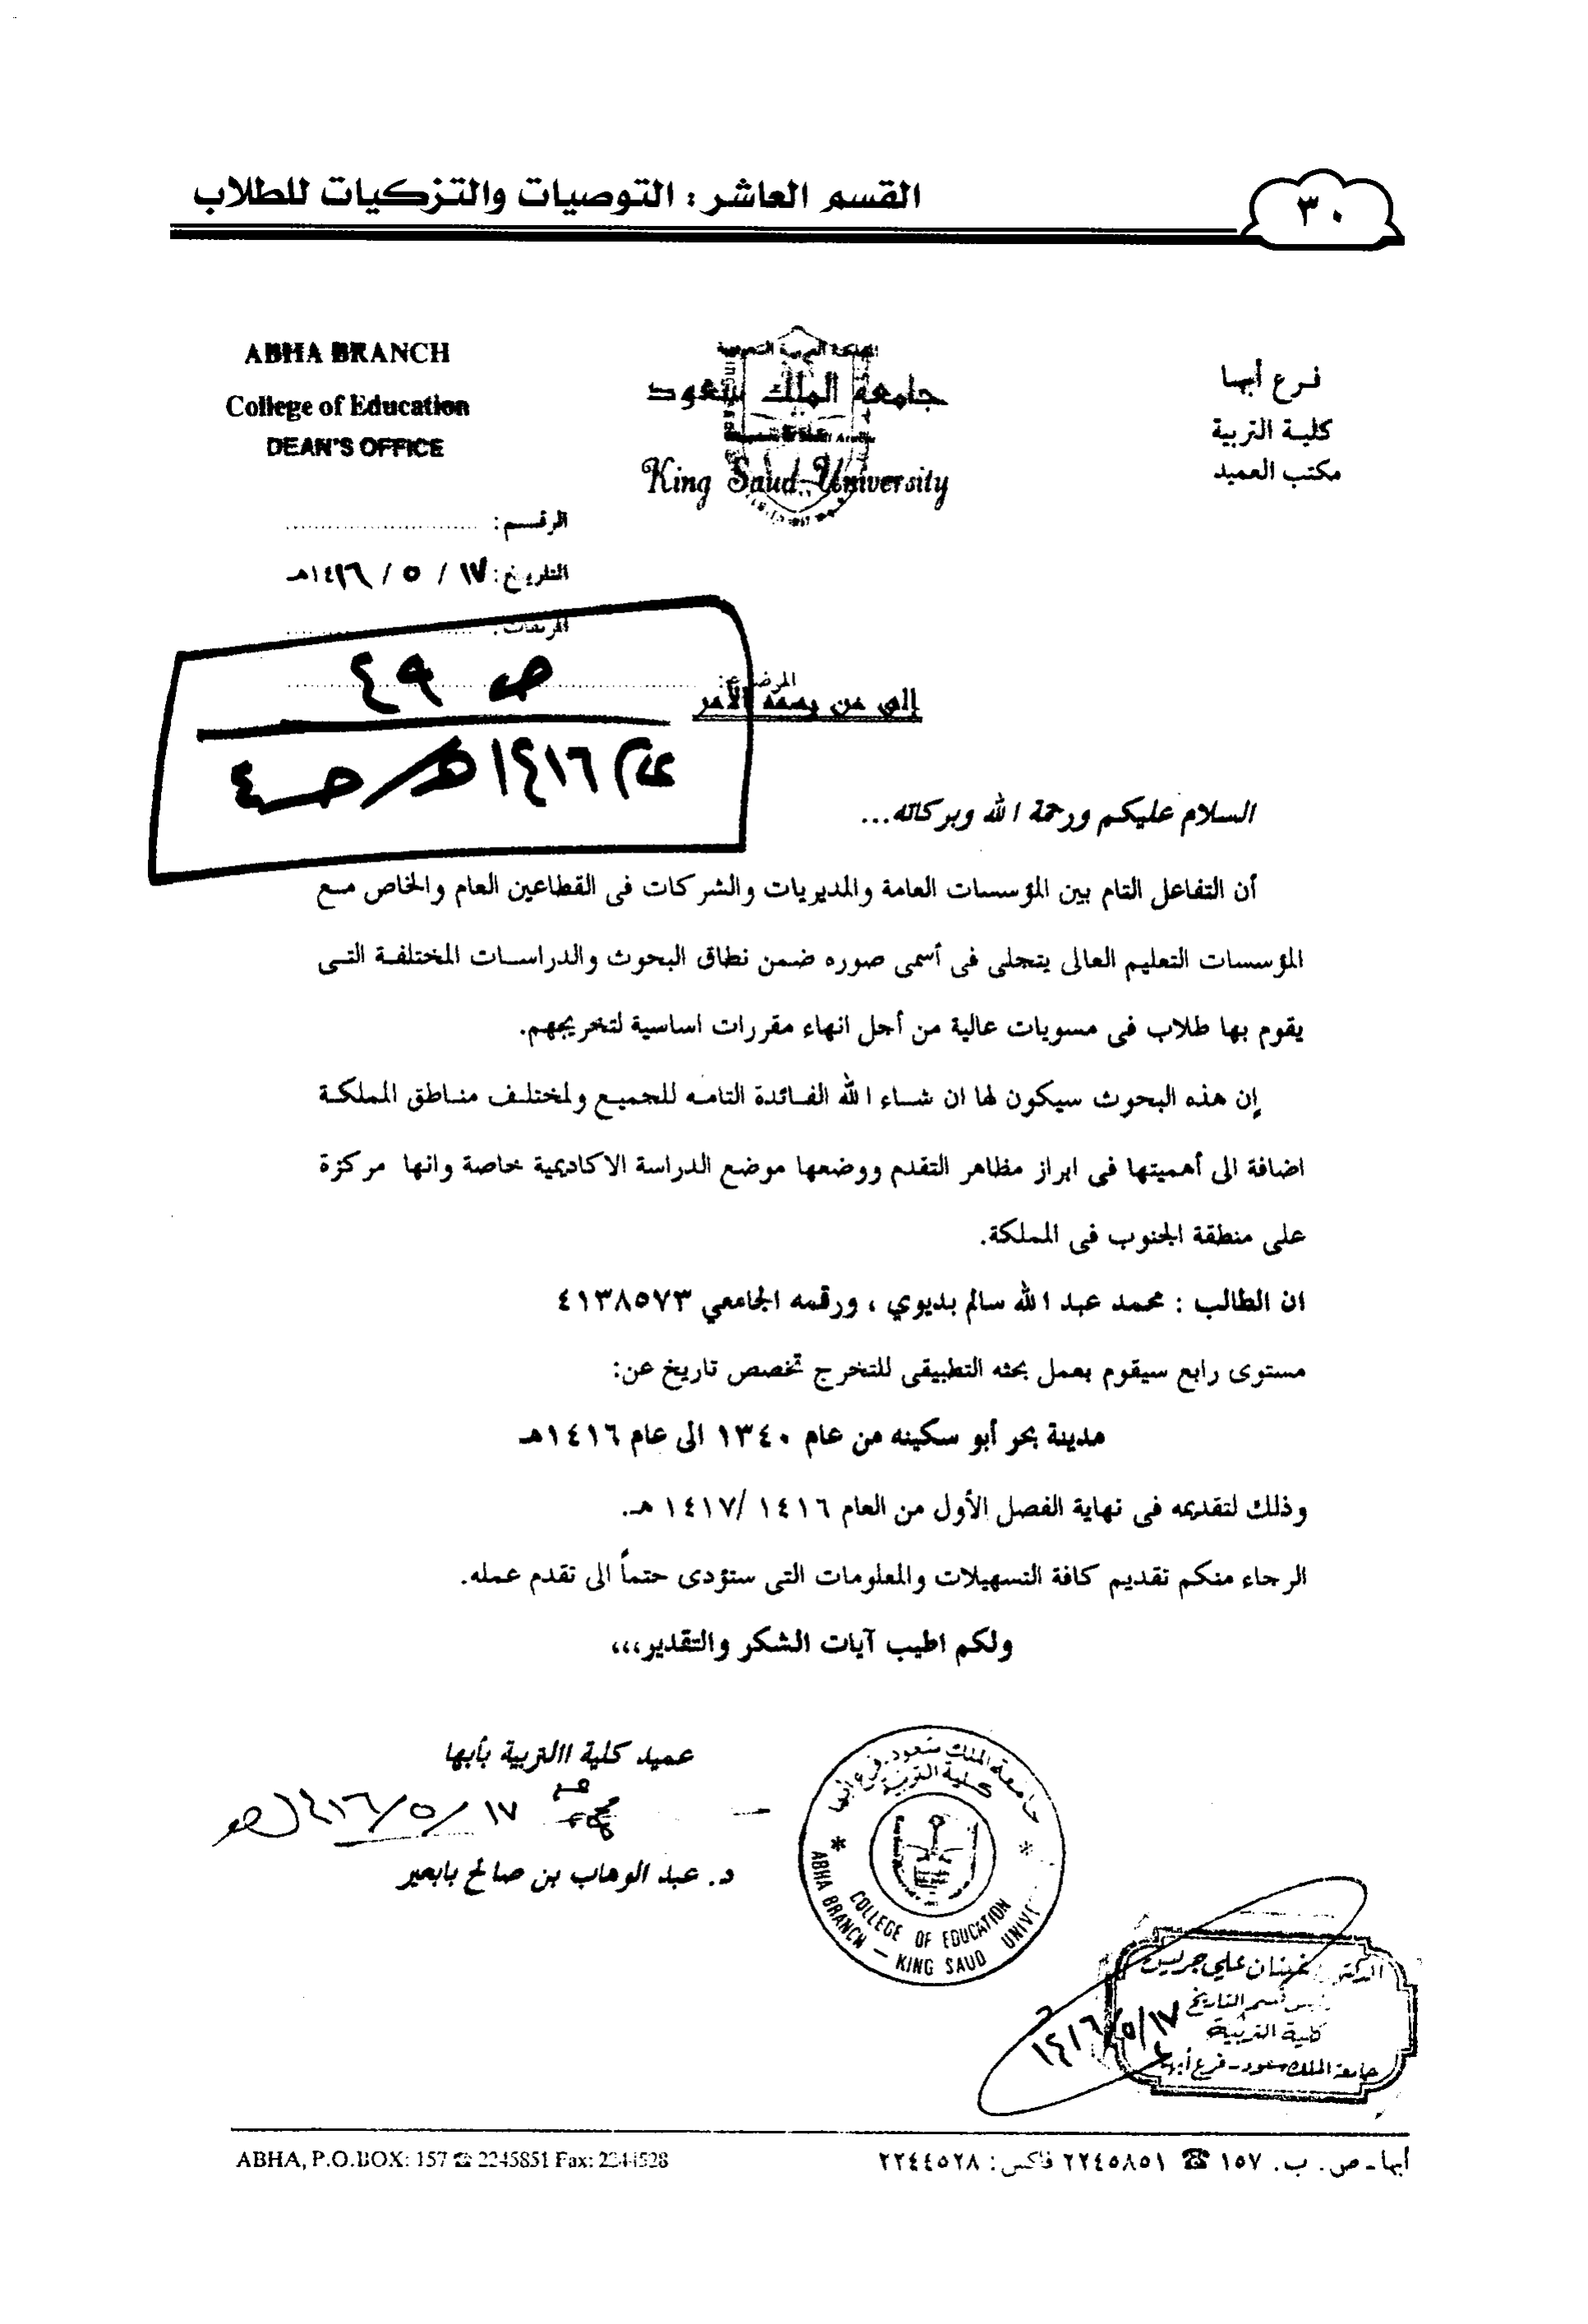 القسم العاشر : التوصيات والتزكيات للطلاب
٣٠
ABHA BRANCH
College of Education
DEAN'S OFFICE
جامعة الملك سعود
King Saud University
فرع أبها
كلية التربية
مكتب العميد
الرقم:
التاريخ: ١٧ / ٥ / ١٤١٦هـ
المرفقات:
الموضوع:
ص ٤٩
١٤١٦هـ / جـ ٤
إلى من يهمه الأمر
السلام عليكم ورحمة الله وبركاته...
أن التفاعل التام بين المؤسسات العامة والمديريات والشركات فى القطاعين العام والخاص مع
المؤسسات التعليم العالى يتجلى فى أسمى صوره ضمن نطاق البحوث والدراسات المختلفة التى
يقوم بها طلاب فى مسويات عالية من أجل انهاء مقررات اساسية لتخريجهم.
إن هذه البحوث سيكون لها ان شاء الله الفائدة التامه للجميع ولمختلف مناطق المملكة
اضافة الى أهميتها فى ابراز مظاهر التقدم ووضعها موضع الدراسة الاكاديمية خاصة وانها مركزة
على منطقة الجنوب فى المملكة.
ان الطالب : محمد عبد الله سالم بديوي ، ورقمه الجامعي ٤١٣٨٥٧٣
مستوى رابع سيقوم بعمل بحثه التطبيقى للتخرج تخصص تاريخ عن:
مدينة بحر أبو سكينه من عام ١٣٤٠ الى عام ١٤١٦هـ
وذلك لتقديمه فى نهاية الفصل الأول من العام ١٤١٦ /١٤١٧ هـ.
الرجاء منكم تقديم كافة التسهيلات والمعلومات التى ستؤدى حتماً الى تقدم عمله.
ولكم اطيب آيات الشكر والتقدير،،،
عميد كلية االتربية بأبها
١٧ /٥/ ١٤١٦هـ
د. عبد الوهاب بن صالح بابعير
جامعة الملك سعود. فرع أبها
كلية التربية
COLLEGE OF EDUCATION
ABHA BRANCH – KING SAUD UNIV
الدكتور غيثان علي جريس
رئيس قسم التاريخ
كلية التربية
جامعة الملك سعود - فرع أبها
١٤١٦/٥/١٧
ABHA, P.O.BOX: 157 ☎ 2245851 Fax: 2244528
أبها - ص. ب. ١٥٧ ☎ ٢٢٤٥٨٥١ فاكس: ٢٢٤٤٥٢٨